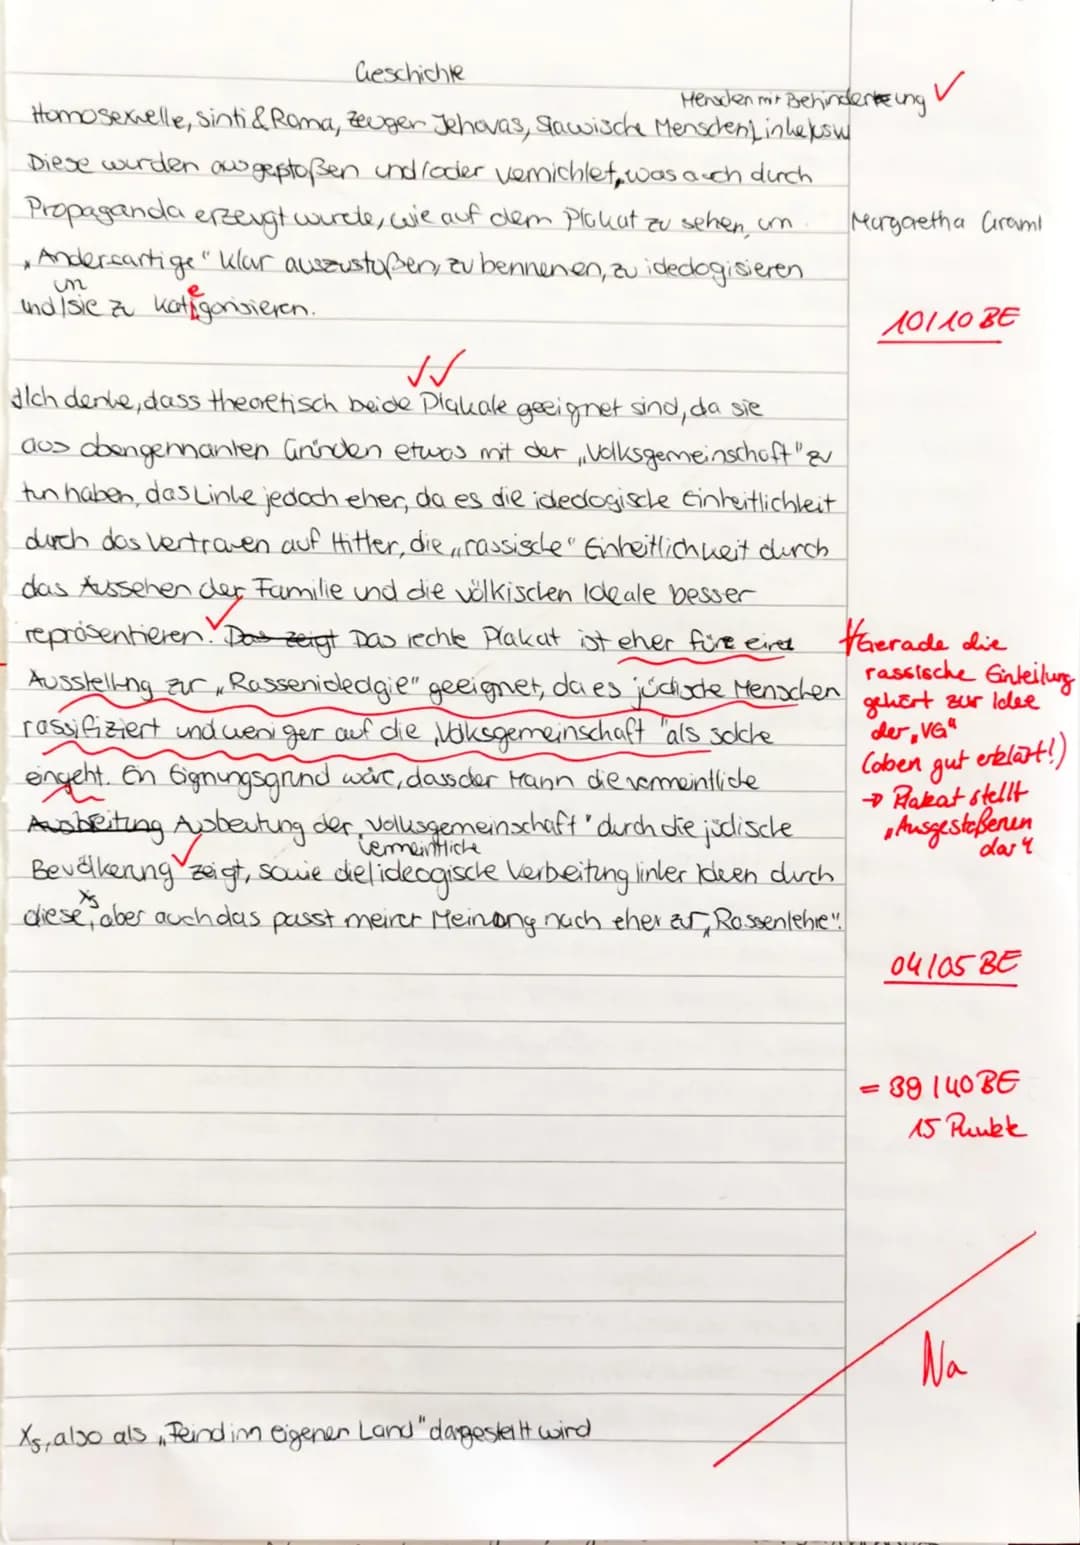 Geschichte
Menschen mit Behinderung
Homosexuelle, Sinti & Roma, Zeugen Jehovas, Slawische Menschen, Linke, usw
Diese wurden ausgestoßen und/oder vernichtet, was auch durch
Propaganda erzeugt wurde, wie auf dem Plakat zu sehen, um
Margaretha Graml
„Andersartige" klar auszustoßen, zu bennenen, zu ideologisieren
um
und/sie zu katigorisieren.
e
10/10 BE
Ich denke, dass theoretisch beide Plakate geeignet sind, da sie
aus obengennanten Gründen etwas mit der „Volksgemeinschaft" zu
tun haben, das Linke jedoch eher, da es die ideologische Einheitlichkeit
durch das Vertrauen auf Hitler, die „rassische" Einheitlichkeit durch
das Aussehen der Familie und die völkischen Ideale besser
repräsentieren. Das zeigt Das rechte Plakat ist eher für eine
Ausstellung zur „Rassenideologie" geeignet, da es jüdische Menschen
rassifiziert und weniger auf die „Volksgemeinschaft" als solche
eingeht. Ein Eignungsgrund wäre, dass der Mann die vermeintliche
Ausbeitung Ausbeutung der „Volksgemeinschaft" durch die jüdische
vermeintliche
Bevölkerung zeigt, sowie die ideogische Verbeitung linker Ideen durch
x5
diese, aber auch das passt meiner Meinung nach eher zur „Rassenlehre".
Gerade die
rassische Einteilung
gehört zur Idee
der „VG"
(oben gut erklärt!)
→ Plakat stellt
„Ausgestoßenen
dar"
04/05 BE
= 39/40 BE
15 Punkte
Na
x5, also als „Feind im eigenen Land" dargestellt wird